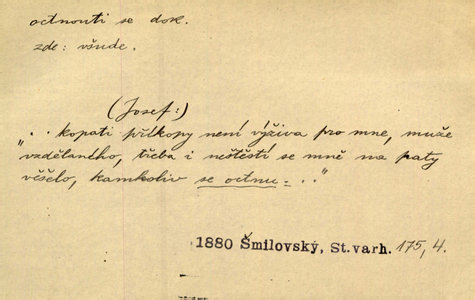 octnouti se dok.
zde: všude.
(Josef:)
„.. kopati příkopy není výživa pro mne, muže
vzdělaného, třeba i neštěstí se mně na paty
věšelo, kamkoliv se octnu = .."
1880 Šmilovský, St. varh. 175, 4.